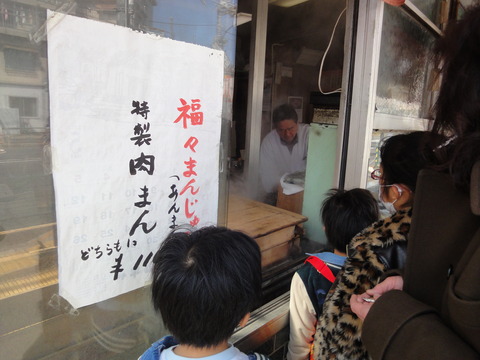 福々まんじゅ
(あんま
特製肉まん
どちらも